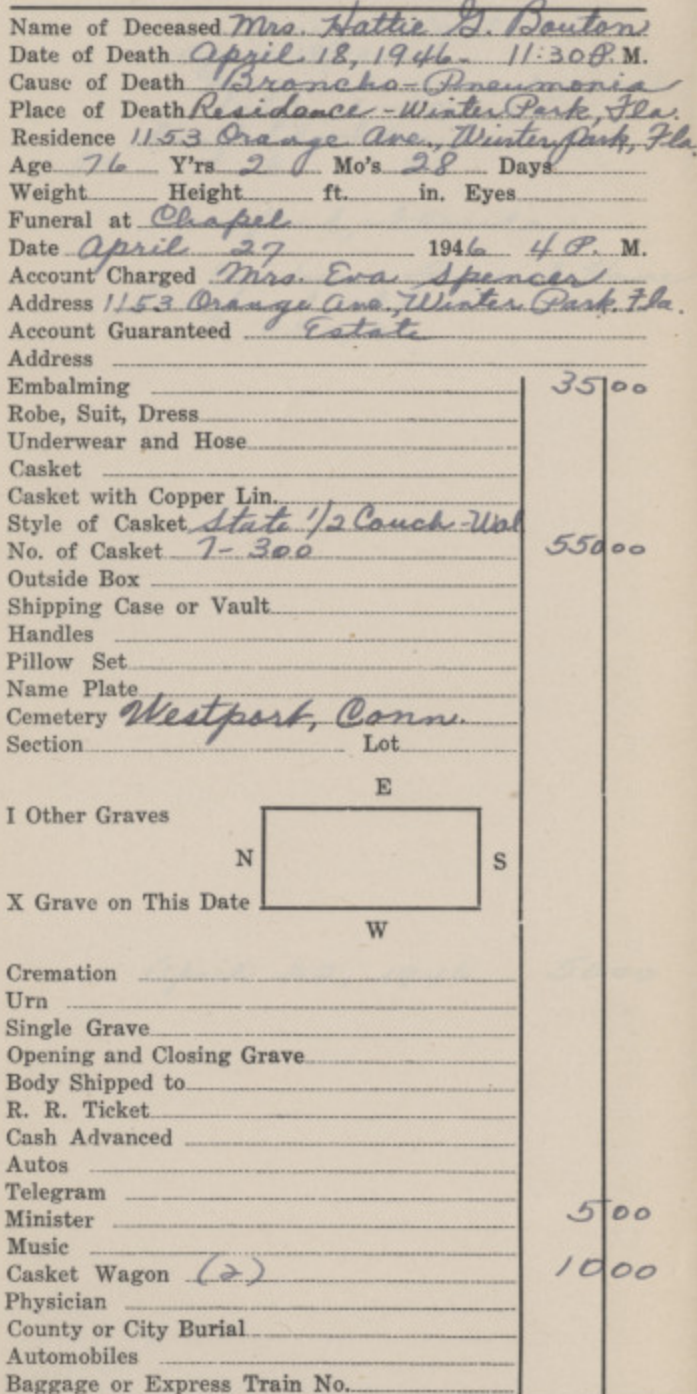 Name of Deceased Mrs. Hattie G. Bouton
Date of Death April 18, 1946 - 11:30 P. M.
Cause of Death Broncho-Pneumonia
Place of Death Residence - Winter Park, Fla.
Residence 1153 Orange Ave., Winter Park, Fla.
Age 76 Y'rs 2 Mo's 28 Days
Weight Height ft. in. Eyes
Funeral at Chapel
Date April 27 1946 4 P. M.
Account Charged Mrs. Eva Spencer
Address 1153 Orange Ave., Winter Park, Fla.
Account Guaranteed Estate
Address
Embalming 35 00
Robe, Suit, Dress
Underwear and Hose
Casket
Casket with Copper Lin.
Style of Casket State 1/2 Couch - Wal
No. of Casket 7-300 550 00
Outside Box
Shipping Case or Vault
Handles
Pillow Set
Name Plate
Cemetery Westport, Conn.
Section Lot
E
I Other Graves
N S
X Grave on This Date
W
Cremation
Urn
Single Grave
Opening and Closing Grave
Body Shipped to
R. R. Ticket
Cash Advanced
Autos
Telegram
Minister 5 00
Music
Casket Wagon (2) 10 00
Physician
County or City Burial
Automobiles
Baggage or Express Train No.